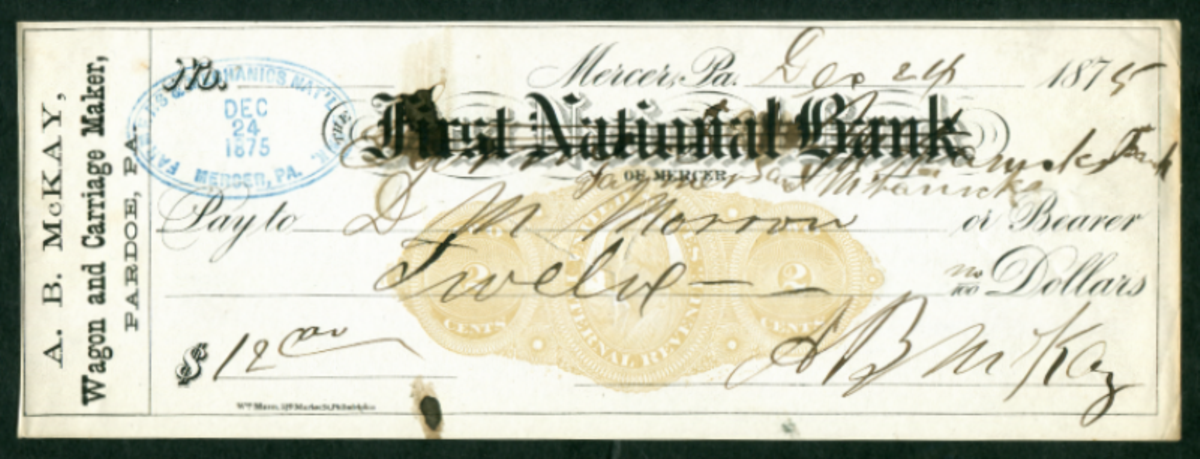 A. B. McKAY,
Wagon and Carriage Maker,
PARDOE, PA.
No.
FARMERS & MECHANICS NAT'L BK.
DEC
24
1875
MERCER, PA.
Mercer, Pa. Dec 24 1875
THE First National Bank
OF MERCER
Farmers and Mechanicks
Pay to D M Morrow or Bearer
Twelve — — no/100 Dollars
2 2
CENTS CENTS
INTERNAL REVENUE
$ 12 00 A B McKay
Wm Mann, 529 Market St, Philadelphia